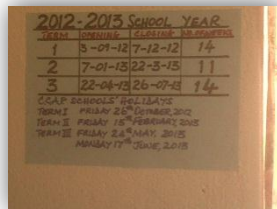 2012-2013 SCHOOL YEAR
TERM OPENING CLOSING NO.OF WEEKS
1 3-09-12 7-12-12 14
2 7-01-13 22-3-13 11
3 22-04-13 26-07-13 14
SCHOOLS' HOLIDAYS
TERM I FRIDAY 26th OCTOBER, 2012
TERM II FRIDAY 15th FEBRUARY, 2013
TERM III FRIDAY 24th MAY, 2013
MONDAY 17th JUNE, 2013